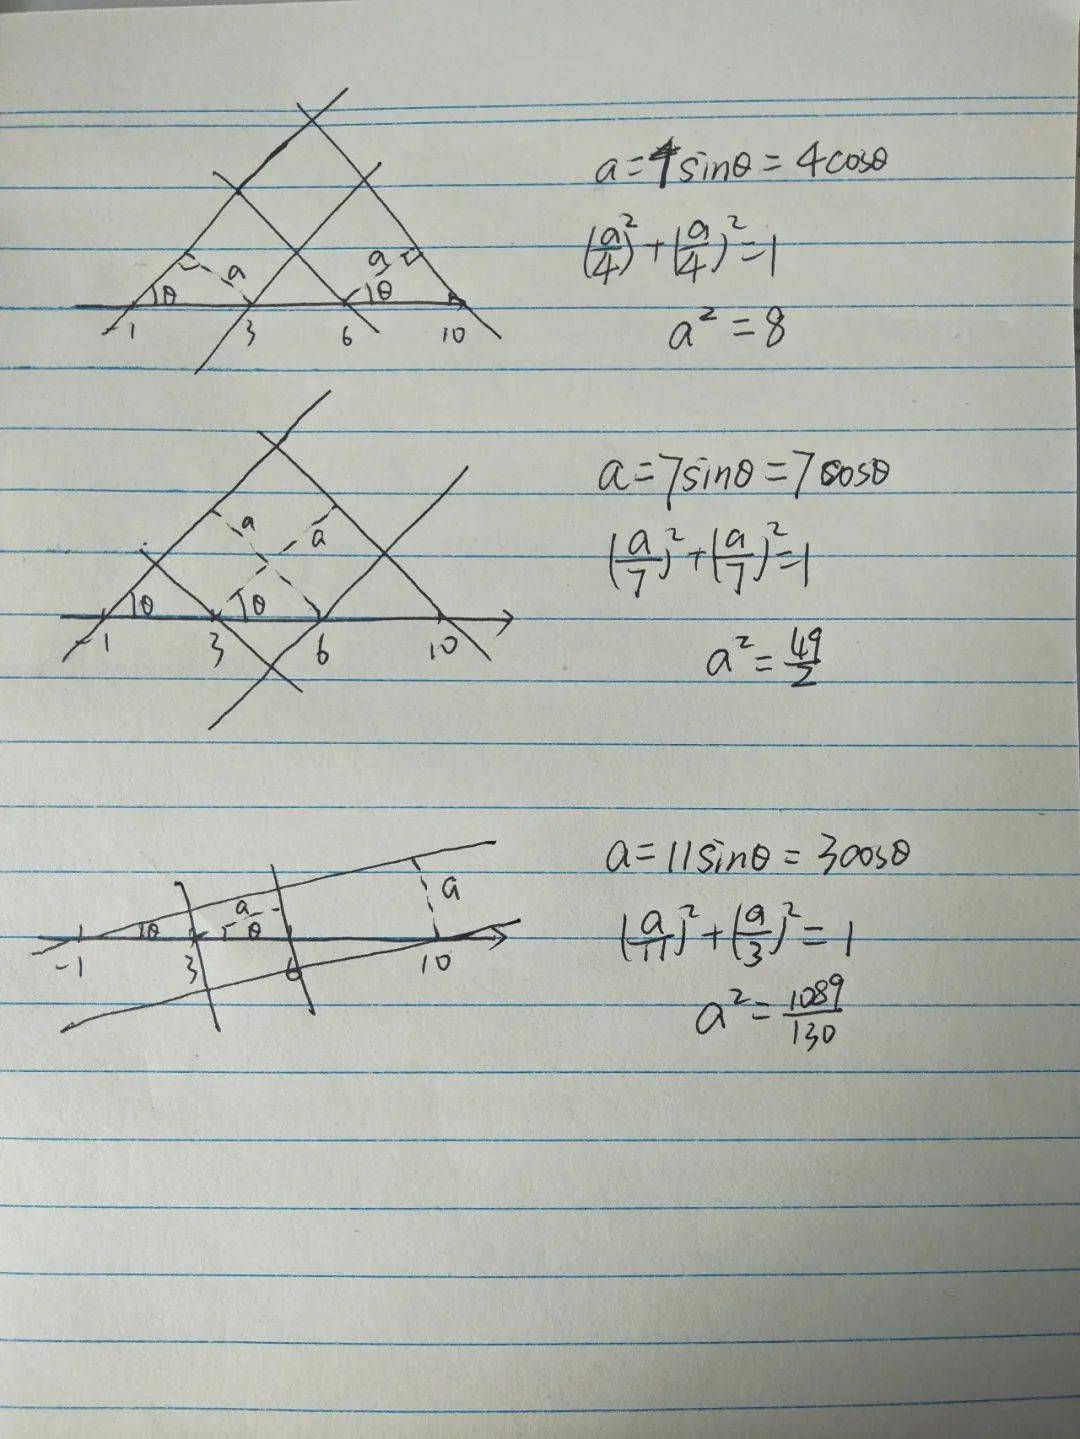 a=4sinθ=4cosθ
(a/4)²+(a/4)²=1
a²=8
a
a
θ
θ
-1
3
6
10
a=7sinθ=7cosθ
(a/7)²+(a/7)²=1
a²=49/2
a
a
θ
θ
-1
3
6
10
a=11sinθ=3cosθ
(a/11)²+(a/3)²=1
a²=1089/130
a
a
θ
θ
-1
3
6
10